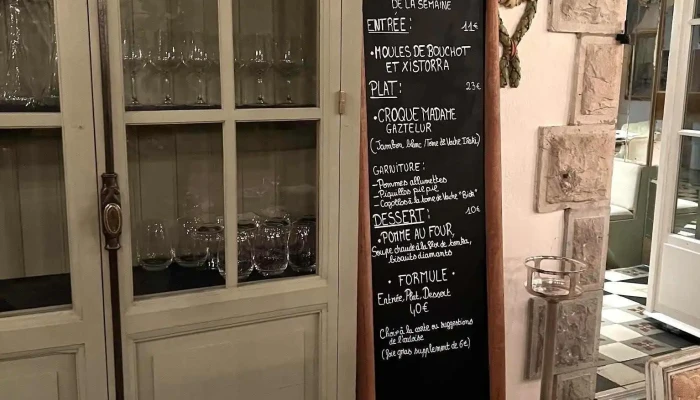 DE LA SEMAINE
ENTRÉE: 11€
• MOULES DE BOUCHOT
ET XISTORRA
PLAT: 23€
• CROQUE MADAME
GAZTELUR
(Jambon blanc/Tome de Vache Idoki)
GARNITURE:
- Pommes allumettes
- Piquillos pil pil
- Cogollos à la tome de Vache "Bide"
DESSERT: 10€
• POMME AU FOUR,
Soupe chaude à la fève de tonka,
biscuits diamants
• FORMULE •
Entrée, Plat, Dessert
40€
Choix à la carte ou suggestions
de l'ardoise
(foie gras supplément de 6€)